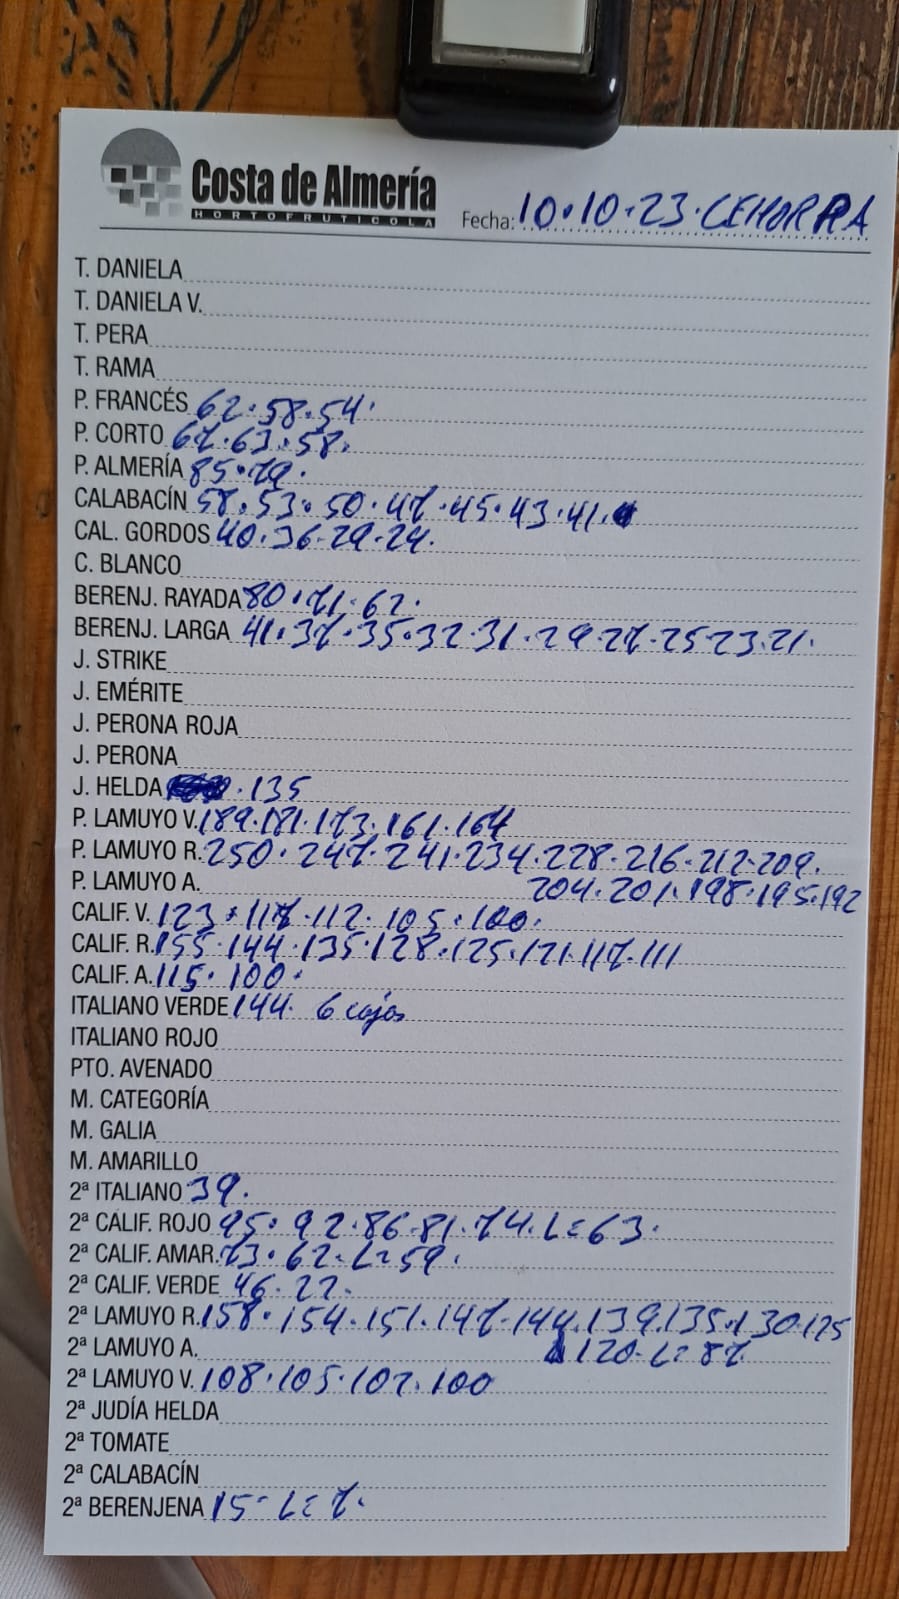 Costa de Almería
HORTOFRUTICOLA
Fecha: 10.10.23. CEHORPA
T. DANIELA
T. DANIELA V.
T. PERA
T. RAMA
P. FRANCÉS 62.58.54.
P. CORTO 67.63.58.
P. ALMERÍA 85.79.
CALABACÍN 58.53.50.47.45.43.41.
CAL. GORDOS 40.36-29-24.
C. BLANCO
BERENJ. RAYADA 80.71.62.
BERENJ. LARGA 41.37.35.32.31.29-27.25-23.21.
J. STRIKE
J. EMÉRITE
J. PERONA ROJA
J. PERONA
J. HELDA .135
P. LAMUYO V. 189.181.173.161.164
P. LAMUYO R. 250.247.241.234.228.216.212-209.
P. LAMUYO A. 204.201.198.195.192
CALIF. V. 123.117.112.105.100.
CALIF. R. 155.144.135.128.125.121.117.111
CALIF. A. 115.100.
ITALIANO VERDE 144. 6 cajas
ITALIANO ROJO
PTO. AVENADO
M. CATEGORÍA
M. GALIA
M. AMARILLO
2ª ITALIANO 39.
2ª CALIF. ROJO 95.92.86.81.74.L=63.
2ª CALIF. AMAR. 73.62.L=59.
2ª CALIF. VERDE 46.22.
2ª LAMUYO R. 158.154.151.147.144.139.135.130.125
2ª LAMUYO A. 120-L=87.
2ª LAMUYO V. 108.105.102.100
2ª JUDÍA HELDA
2ª TOMATE
2ª CALABACÍN
2ª BERENJENA 15-L=7.